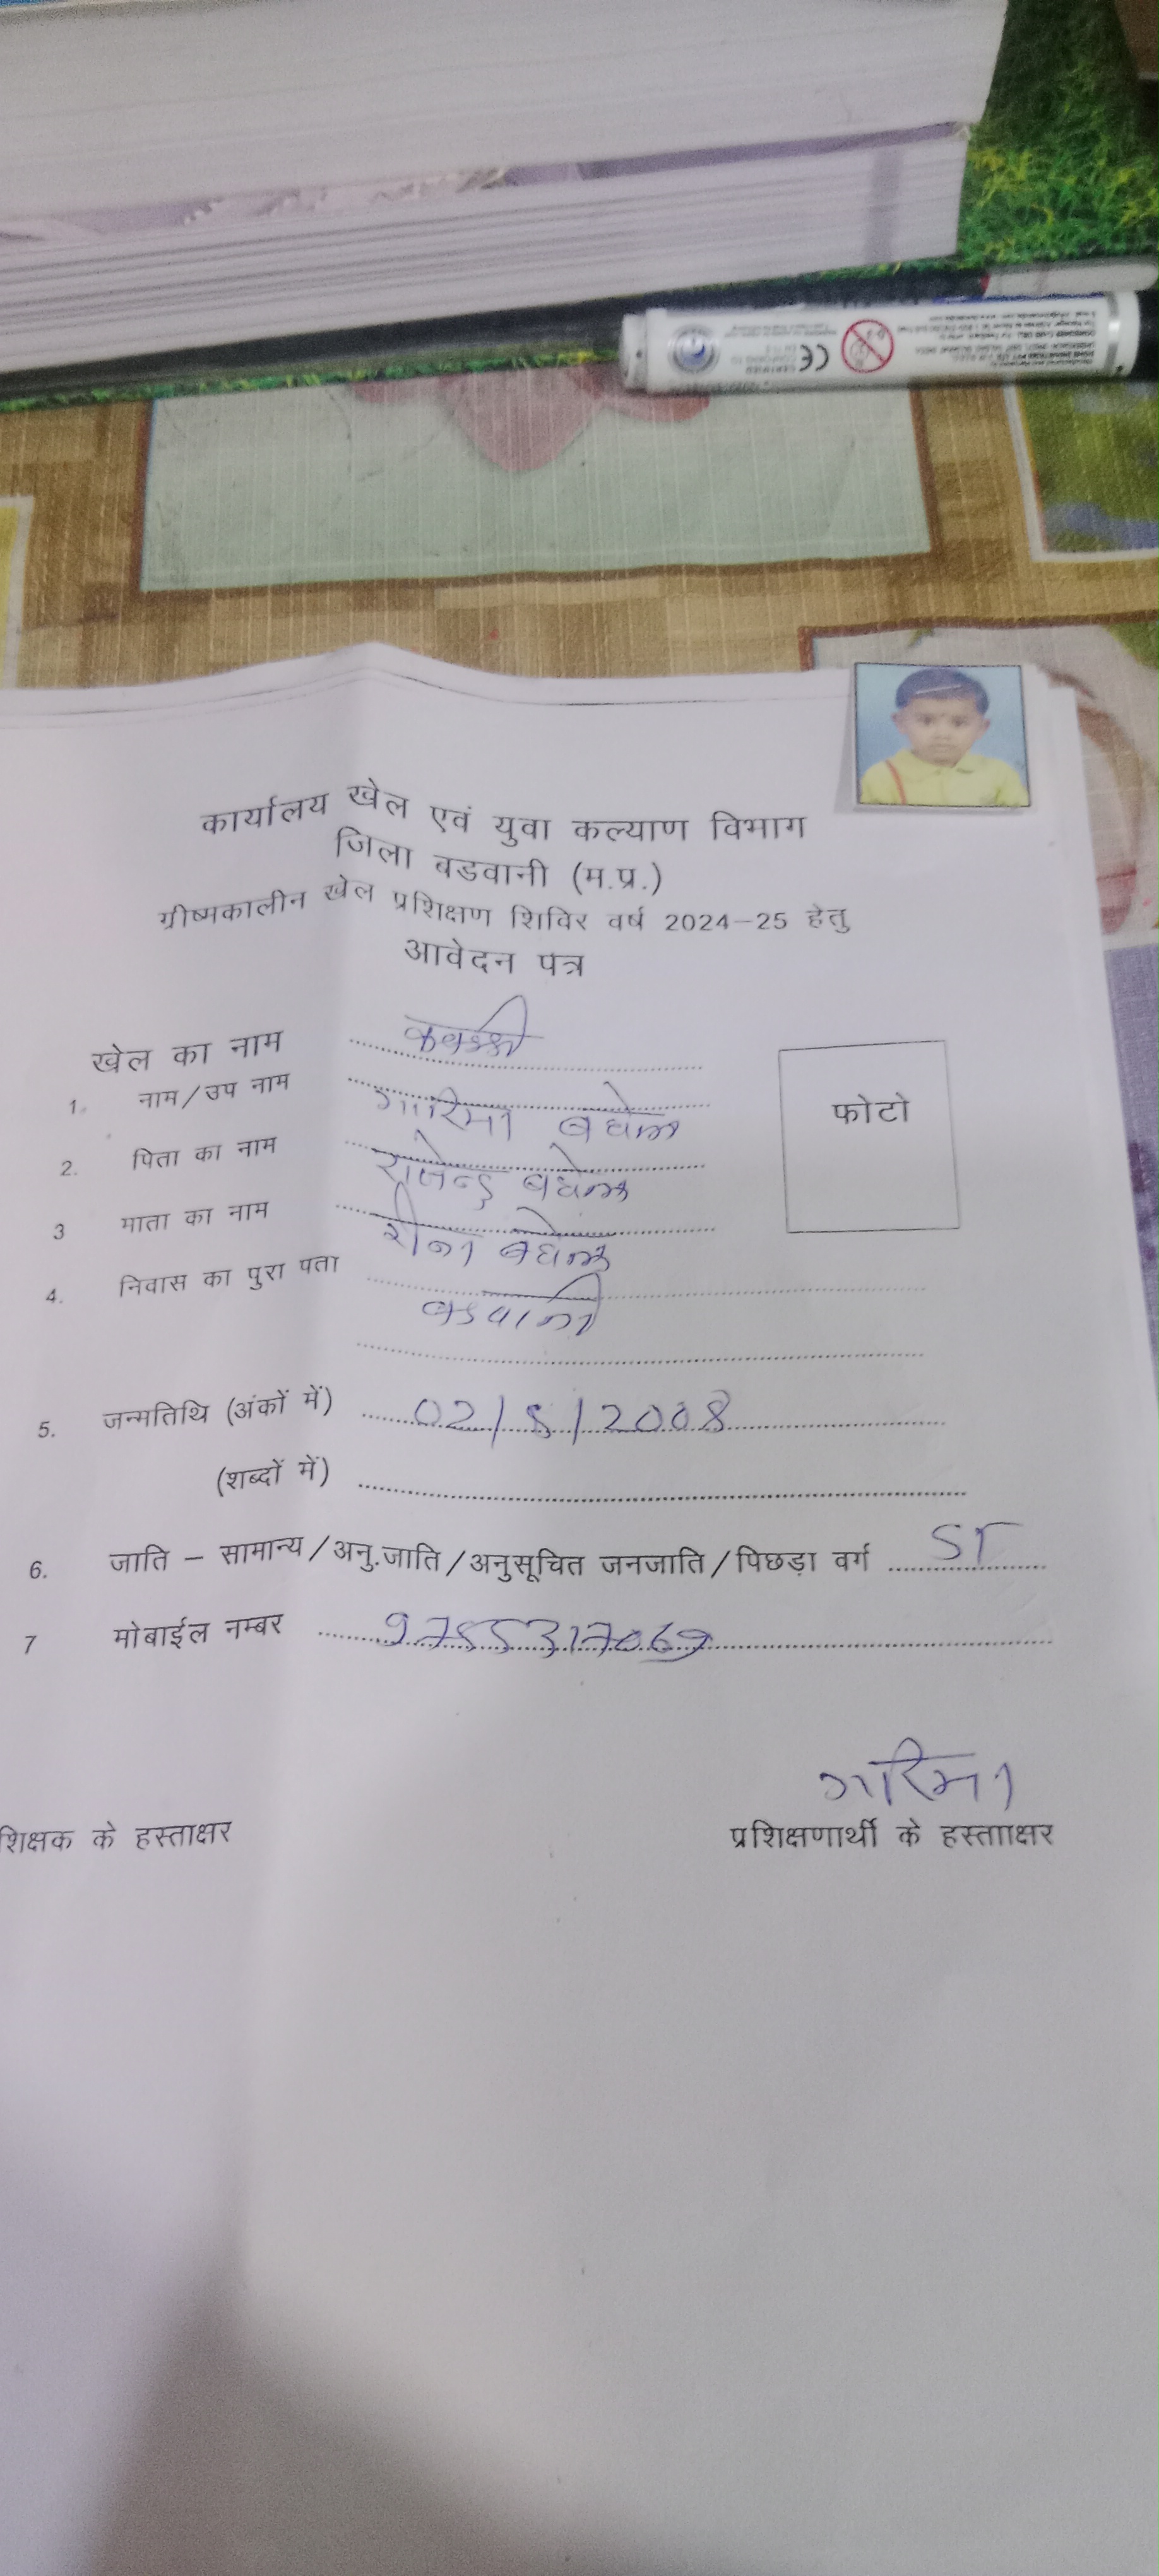 CERTIFIED
CE
कार्यालय खेल एवं युवा कल्याण विभाग
जिला बडवानी (म.प्र.)
ग्रीष्मकालीन खेल प्रशिक्षण शिविर वर्ष 2024-25 हेतु
आवेदन पत्र
खेल का नाम कबड्डी
1. नाम/उप नाम गारिमा बघेल
फोटो
2. पिता का नाम राजेन्द्र बघेल
3 माता का नाम रीना बघेल
4. निवास का पुरा पता बडवानी
5. जन्मतिथि (अंकों में) 02/8/2008
(शब्दों में)
6. जाति – सामान्य/अनु.जाति/अनुसूचित जनजाति/पिछड़ा वर्ग ST
7 मोबाईल नम्बर 9755317069
गारिमा
शिक्षक के हस्ताक्षर प्रशिक्षणार्थी के हस्तााक्षर